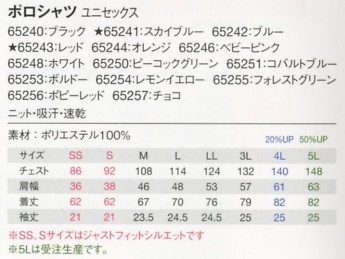 ポロシャツ ユニセックス
65240:ブラック ★65241:スカイブルー 65242:ブルー
★65243:レッド 65244:オレンジ 65246:ベビーピンク
65248:ホワイト 65250:ピーコックグリーン 65251:コバルトブルー
65253:ボルドー 65254:レモンイエロー 65255:フォレストグリーン
65256:ポピーレッド 65257:チョコ
ニット・吸汗・速乾
素材:ポリエステル100%
20%UP 50%UP
サイズ SS S M L LL 3L 4L 5L
チェスト 86 92 108 114 124 132 140 148
肩幅 36 38 46 48 53 57 61 63
着丈 62 62 67 70 76 79 82 82
袖丈 21 21 23.5 24.5 24.5 25 25 25
※SS、Sサイズはジャストフィットシルエットです
※5Lは受注生産です。